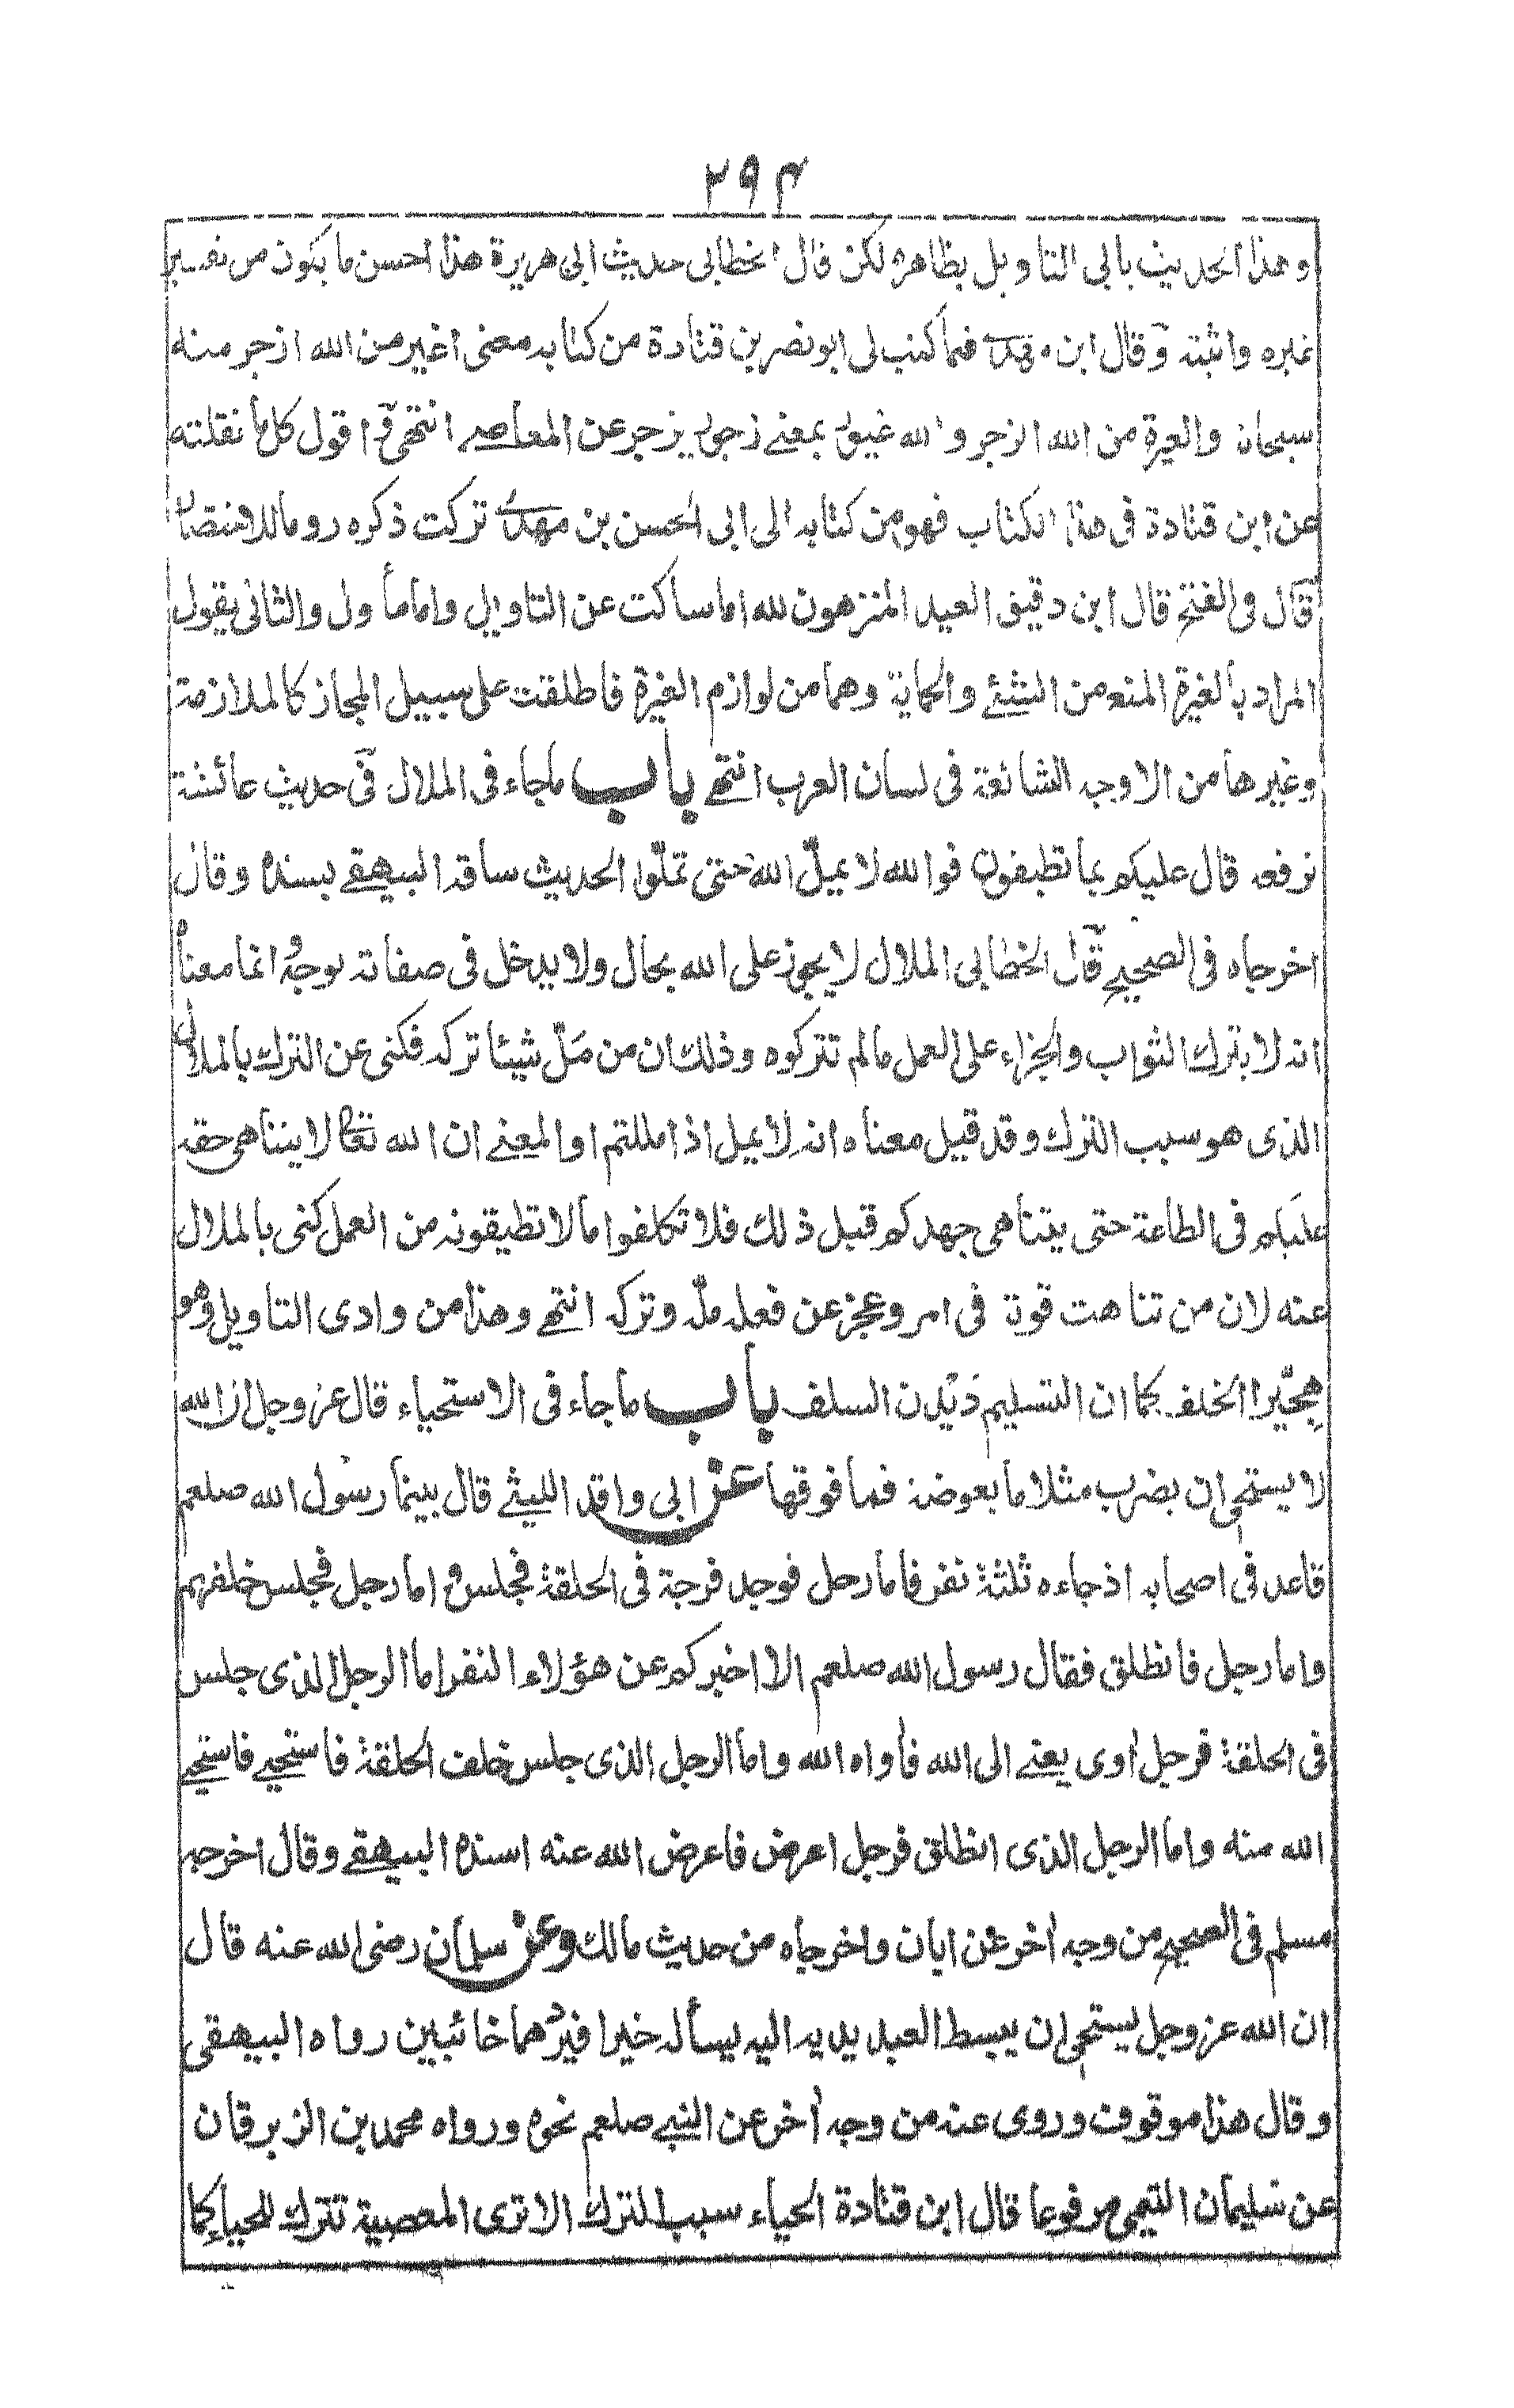 ٢٩٤
وهذا الحديث يابى التاويل بظاهره لكن قال الخطابى حديث ابى هريرة هذا احسن ما يكون من تفسير
غيره واثبته وقال ابن مهدى فيما كتب لى ابو نصر بن قتادة من كتابه معنى اغير من الله ازجر منه
سبحانه والغيرة من الله الزجر والله غيور بمعنے زجور يزجر عن المعاصے انتهى و اقول كل ما نقلته
عن ابن قتادة فى هذا الكتاب فهو من كتابه الى ابى الحسن بن مهدى تركت ذكره روما للاختصار
قال فى الفتح قال ابن دقيق العيد المنزهون لله اما ساكت عن التاويل واما ماول والثانى يقول
المراد بالغيرة المنع من الشئے والحماية وهما من لوازم الغيرة فاطلقت على سبيل المجاز كالملازمة
وغيرها من الاوجه الشائعة فى لسان العرب انتهے باب ما جاء فى الملال فى حديث عائشة
ترفعه قال عليكم بما تطيقون فوالله لا يملّ الله حتى تملّوا الحديث ساقه البيهقے بسنده وقال
اخرجاه فى الصحيح قال الخطابى الملال لا يجوز على الله بحال ولا يدخل فى صفاته بوجه وانما معناه
انه لا يترك الثواب والجزاء على العمل ما لم تتركوه وذلك ان من مَلّ شيئا تركه فكنى عن الترك بالملال
الذى هو سبب الترك وقد قيل معناه انه لا يمل اذا مللتم او المعنے ان الله تعالى لا يتناهى حقه
عليكم فى الطاعة حتى يتناهى جهدكم قبل ذلك فلا تكلفوا ما لا تطيقونه من العمل كنى بالملال
عنه لان من تناهت قوته فى امر وعجز عن فعله ملّه وتركه انتهے وهذا من وادى التاويل وهو
هِجّيرا الخلف كما ان التسليم دَيْدن السلف باب ما جاء فى الاستحياء قال عز وجل ان الله
لا يستحى ان يضرب مثلا ما بعوضة فما فوقها عن ابى واقد الليثے قال بينما رسول الله صلعم
قاعد فى اصحابه اذ جاءه ثلثة نفر فاما رجل فوجد فرجة فى الحلقة فجلس واما رجل فجلس خلفهم
واما رجل فانطلق فقال رسول الله صلعم الا اخبركم عن هؤلاء النفر اما الرجل الذى جلس
فى الحلقة فرجل اوى يعنے الى الله فأواه الله واما الرجل الذى جلس خلف الحلقة فاستحيے فاستحيے
الله منه واما الرجل الذى انطلق فرجل اعرض فاعرض الله عنه اسنده البيهقے وقال اخرجه
مسلم فى الصحيح من وجه أخر عن ابان واخرجاه من حديث مالك وعن سلمان رضى الله عنه قال
ان الله عز وجل يستحى ان يبسط العبد يديه اليه يسأله خيرا فيردهما خائبين رواه البيهقى
وقال هذا موقوف وروى عنه من وجه أخر عن النبے صلعم نحوه ورواه محمد بن الزبرقان
عن سليمان التيمى مرفوعا قال ابن قتادة الحياء سبب للترك الا ترى المعصية تترك للحياء كما